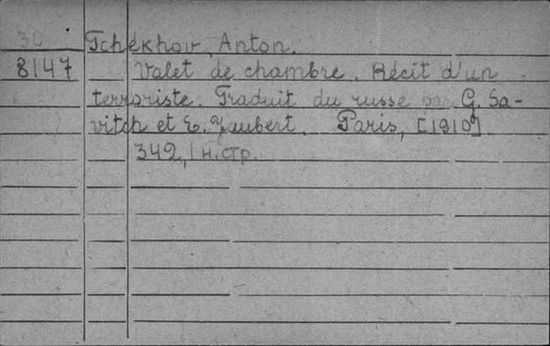 30
Tchekhov, Anton.
8147
Valet de chambre. Récit d'un
terroriste. Traduit du russe par G. Sa-
vitch et E. Jaubert. Paris, [1910]
342, 1 н.стр.